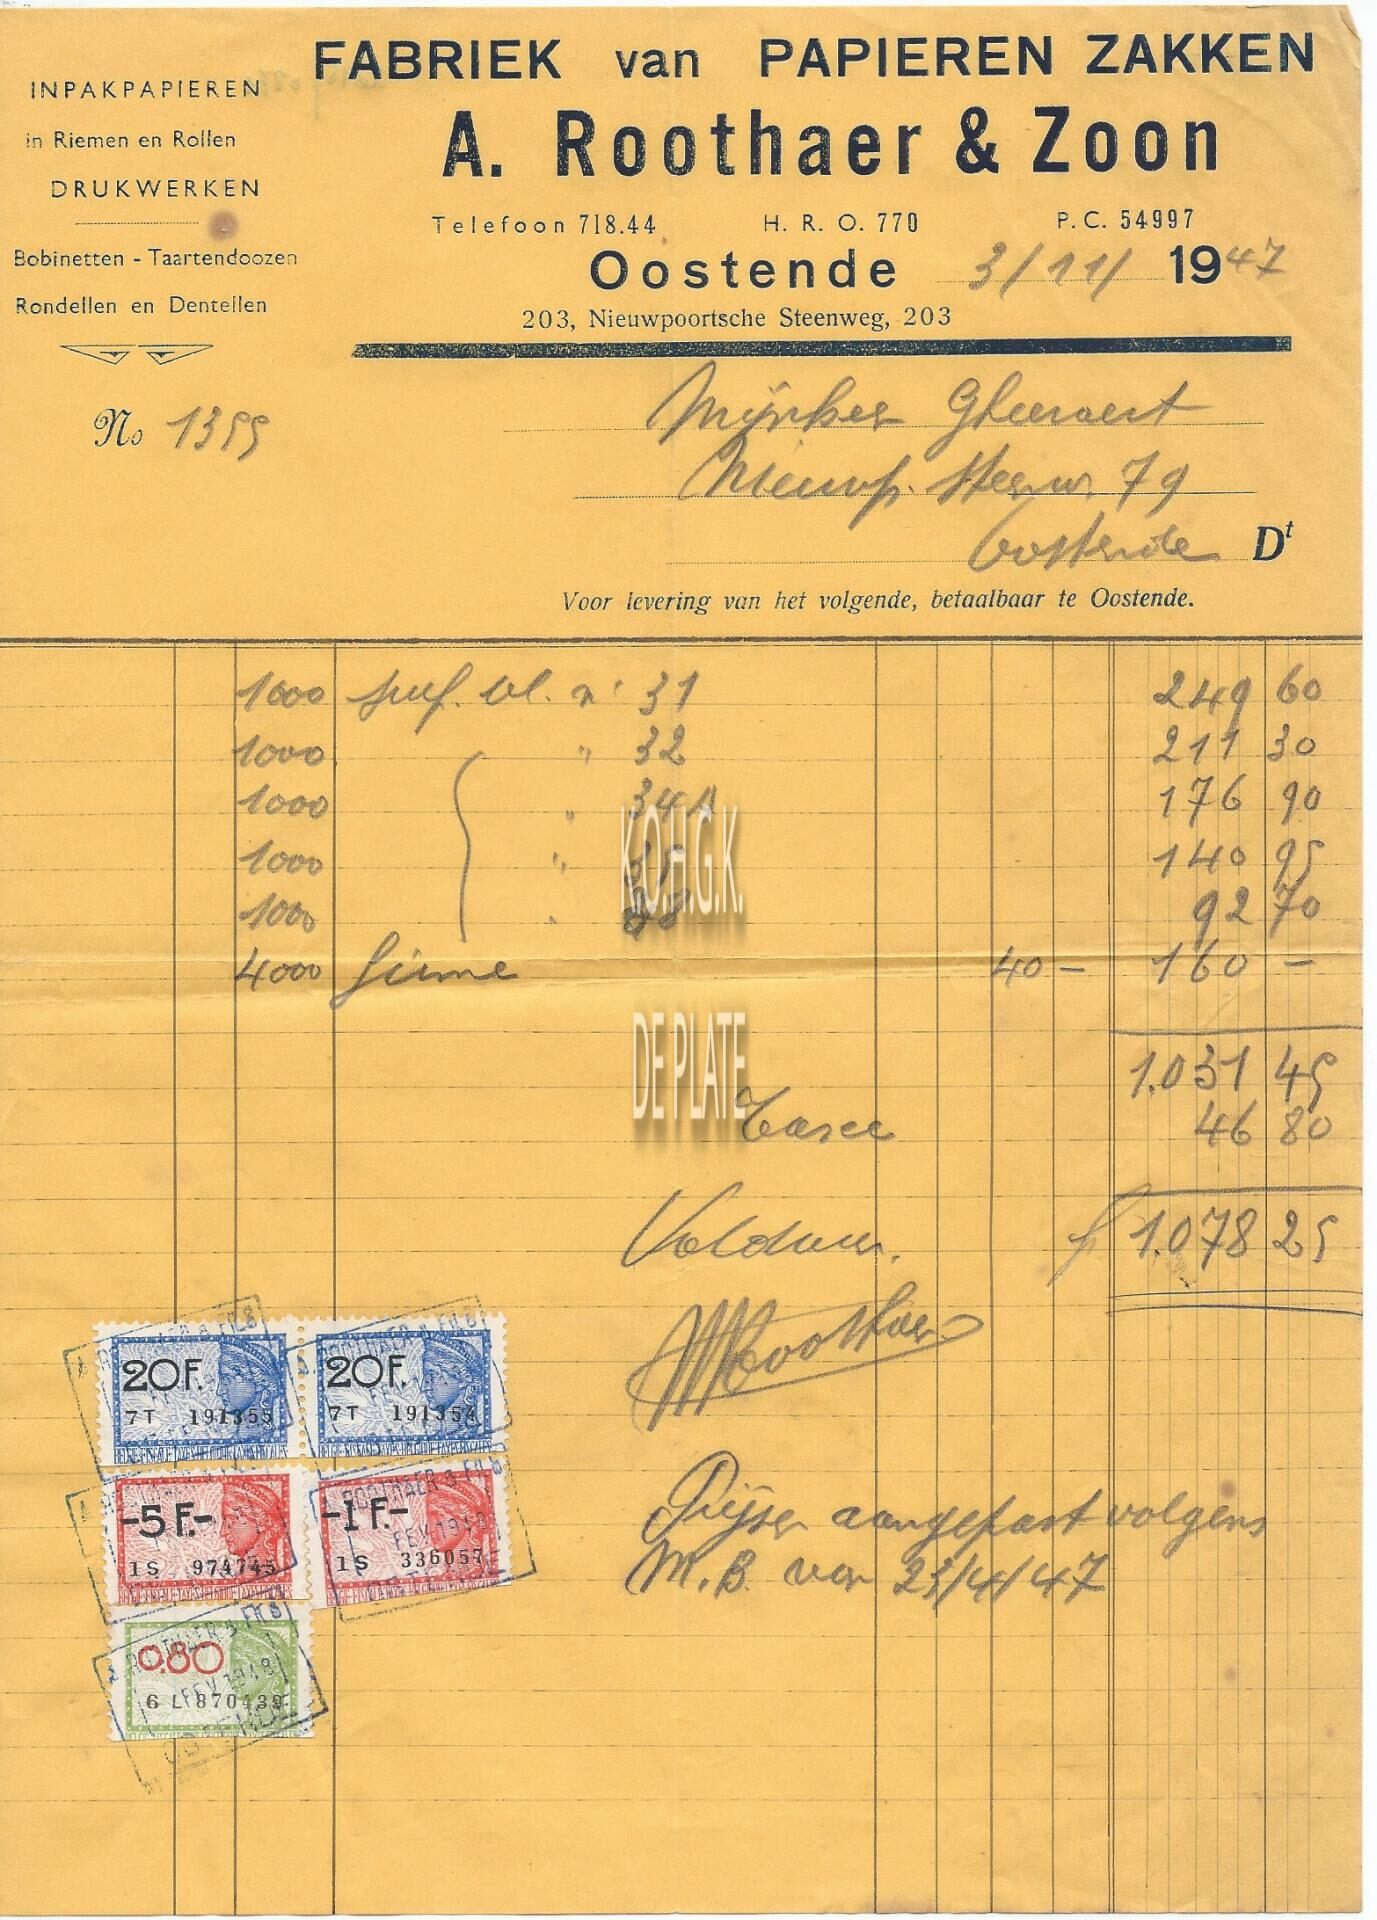 FABRIEK van PAPIEREN ZAKKEN
A. Roothaer & Zoon
INPAKPAPIEREN
in Riemen en Rollen
DRUKWERKEN
Bobinetten - Taartendoozen
Rondellen en Dentellen
Telefoon 718.44 H. R. O. 770 P.C. 54997
Oostende 3/11/ 1947
203, Nieuwpoortsche Steenweg, 203
No 1355
Mijnheer Gheeraert
Nieuwp. Steenw. 79
Oostende Dt
Voor levering van het volgende, betaalbaar te Oostende.
1000 31 249 60
1000 " 32 211 30
1000 " 34A 176 90
1000 " 35 140 95
1000 " 38 92 70
4000 firme 40 - 160 -
K.O.H.G.K.
DE PLATE
1.031 45
Taxe 46 80
Voldaan. fr 1.078 25
Roothaer
Prijzen aangepast volgens
M.B. van 23/4/47
20F. 7T 191355
20F. 7T 191354
-5F.- 1S 974745
-1F.- 1S 336057
0.80 6 L 870439
A. ROOTHAER & FILS
FEV. 1948
OOSTENDE